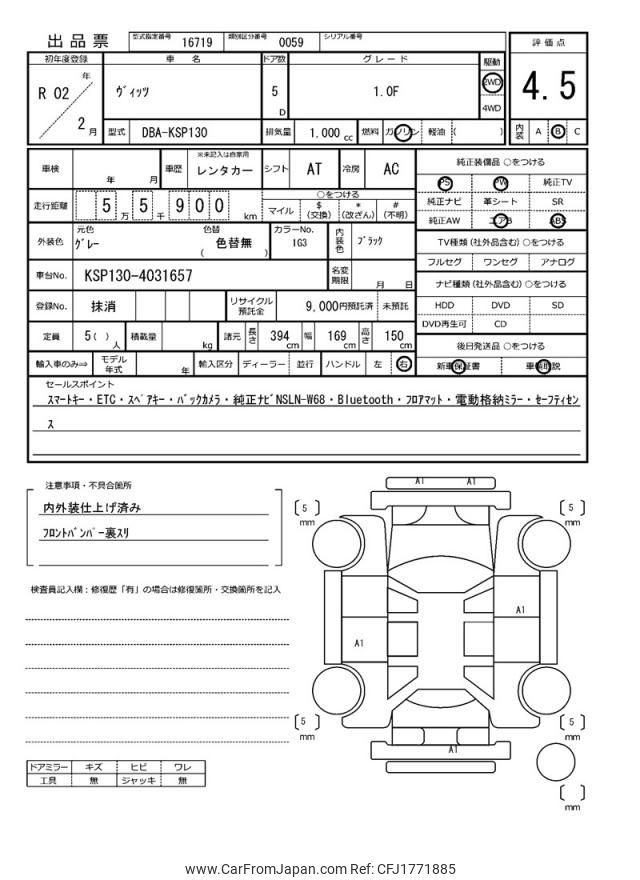 出品票 型式指定番号 16719 類別区分番号 0059 シリアル番号
評価点
4.5
内装 A B C
初年度登録 車名 ドア数 グレード 駆動
R 02 年 2 月 ヴィッツ 5 D 1.0F 2WD 4WD
型式 DBA-KSP130 排気量 1.000 cc 燃料 ガソリン 軽油 ( )
車検 年 月 車歴 ※未記入は自家用 レンタカー シフト AT 冷房 AC
走行距離 5 万 5 千 9 0 0 km ○をつける
マイル $ (交換) * (改ざん) # (不明)
外装色 元色 グレー 色替 色替無 ( ) カラーNo. 1G3 内装色 ブラック
車台No. KSP130-4031657 名変期限 月 日
登録No. 抹消 リサイクル預託金 9,000円預託済 未預託
定員 5( ) 人 積載量 kg 諸元 長さ 394 cm 幅 169 cm 高さ 150 cm
輸入車のみ⇒ モデル年式 年 輸入区分 ディーラー 並行 ハンドル 左 右
純正装備品 ○をつける
PS PW 純正TV
純正ナビ 革シート SR
純正AW エアB ABS
TV種類(社外品含む)○をつける
フルセグ ワンセグ アナログ
ナビ種類(社外品含む)○をつける
HDD DVD SD
DVD再生可 CD
後日発送品 ○をつける
新車保証書 車輌取説
セールスポイント
スマートキー・ETC・スペアキー・バックカメラ・純正ナビNSLN-W68・Bluetooth・フロアマット・電動格納ミラー・セーフティセン
ス
注意事項・不具合箇所
内外装仕上げ済み
フロントバンパー裏スリ
検査員記入欄:修復歴「有」の場合は修復箇所・交換箇所を記入
A1 A1
5 mm 5 mm
A1
A1
5 mm 5 mm
A1
mm
ドアミラー キズ ヒビ ワレ
工具 無 ジャッキ 無
www.CarFromJapan.com Ref: CFJ1771885